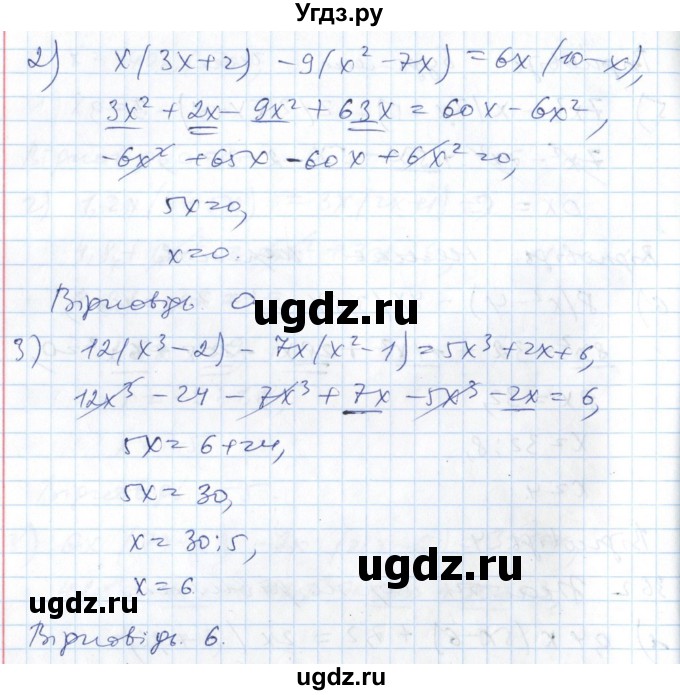 Угдз.ру
2) x(3x+2) - 9(x² - 7x) = 6x(10-x),
3x² + 2x - 9x² + 63x = 60x - 6x²,
-6x² + 65x - 60x + 6x² = 0,
5x=0,
x=0.
Відповідь. 0
ugdz.ru
3) 12(x³ - 2) - 7x(x² - 1) = 5x³ + 2x + 6,
12x³ - 24 - 7x³ + 7x - 5x³ - 2x = 6,
5x = 6 + 24,
5x = 30,
x = 30 : 5,
x = 6
ugdz.ru
ugdz.ru
Відповідь. 6.
ugdz.ru